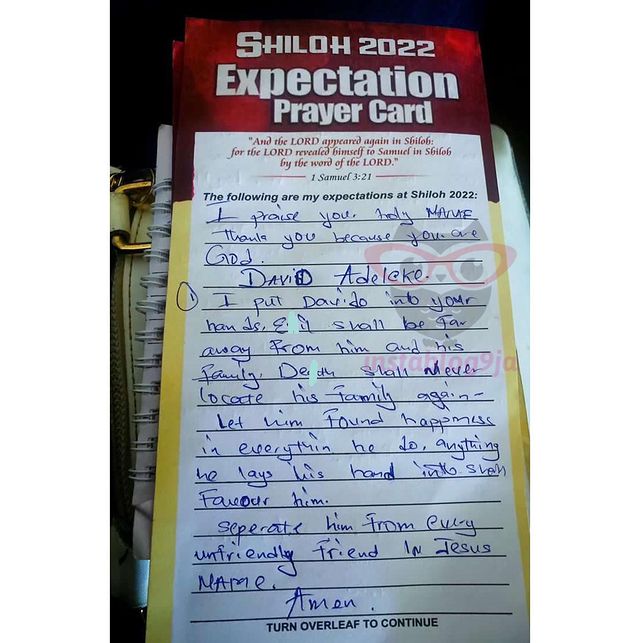 SHILOH 2022
Expectation
Prayer Card
"And the LORD appeared again in Shiloh:
for the LORD revealed himself to Samuel in Shiloh
by the word of the LORD."
1 Samuel 3:21
The following are my expectations at Shiloh 2022:
I praise you holy NAME
Thank you because you are
God.
DAVID Adeleke.
① I put Davido into your
hands. Evil shall be far
away From him and his
Family. Death shall Never
locate his Family again-
Let him Found happiness
in everything he do, anything
he lays his hand into shall
Favour him.
Seperate him From every
unfriendly Friend IN Jesus
NAME.
Amen.
TURN OVERLEAF TO CONTINUE
instablog9ja